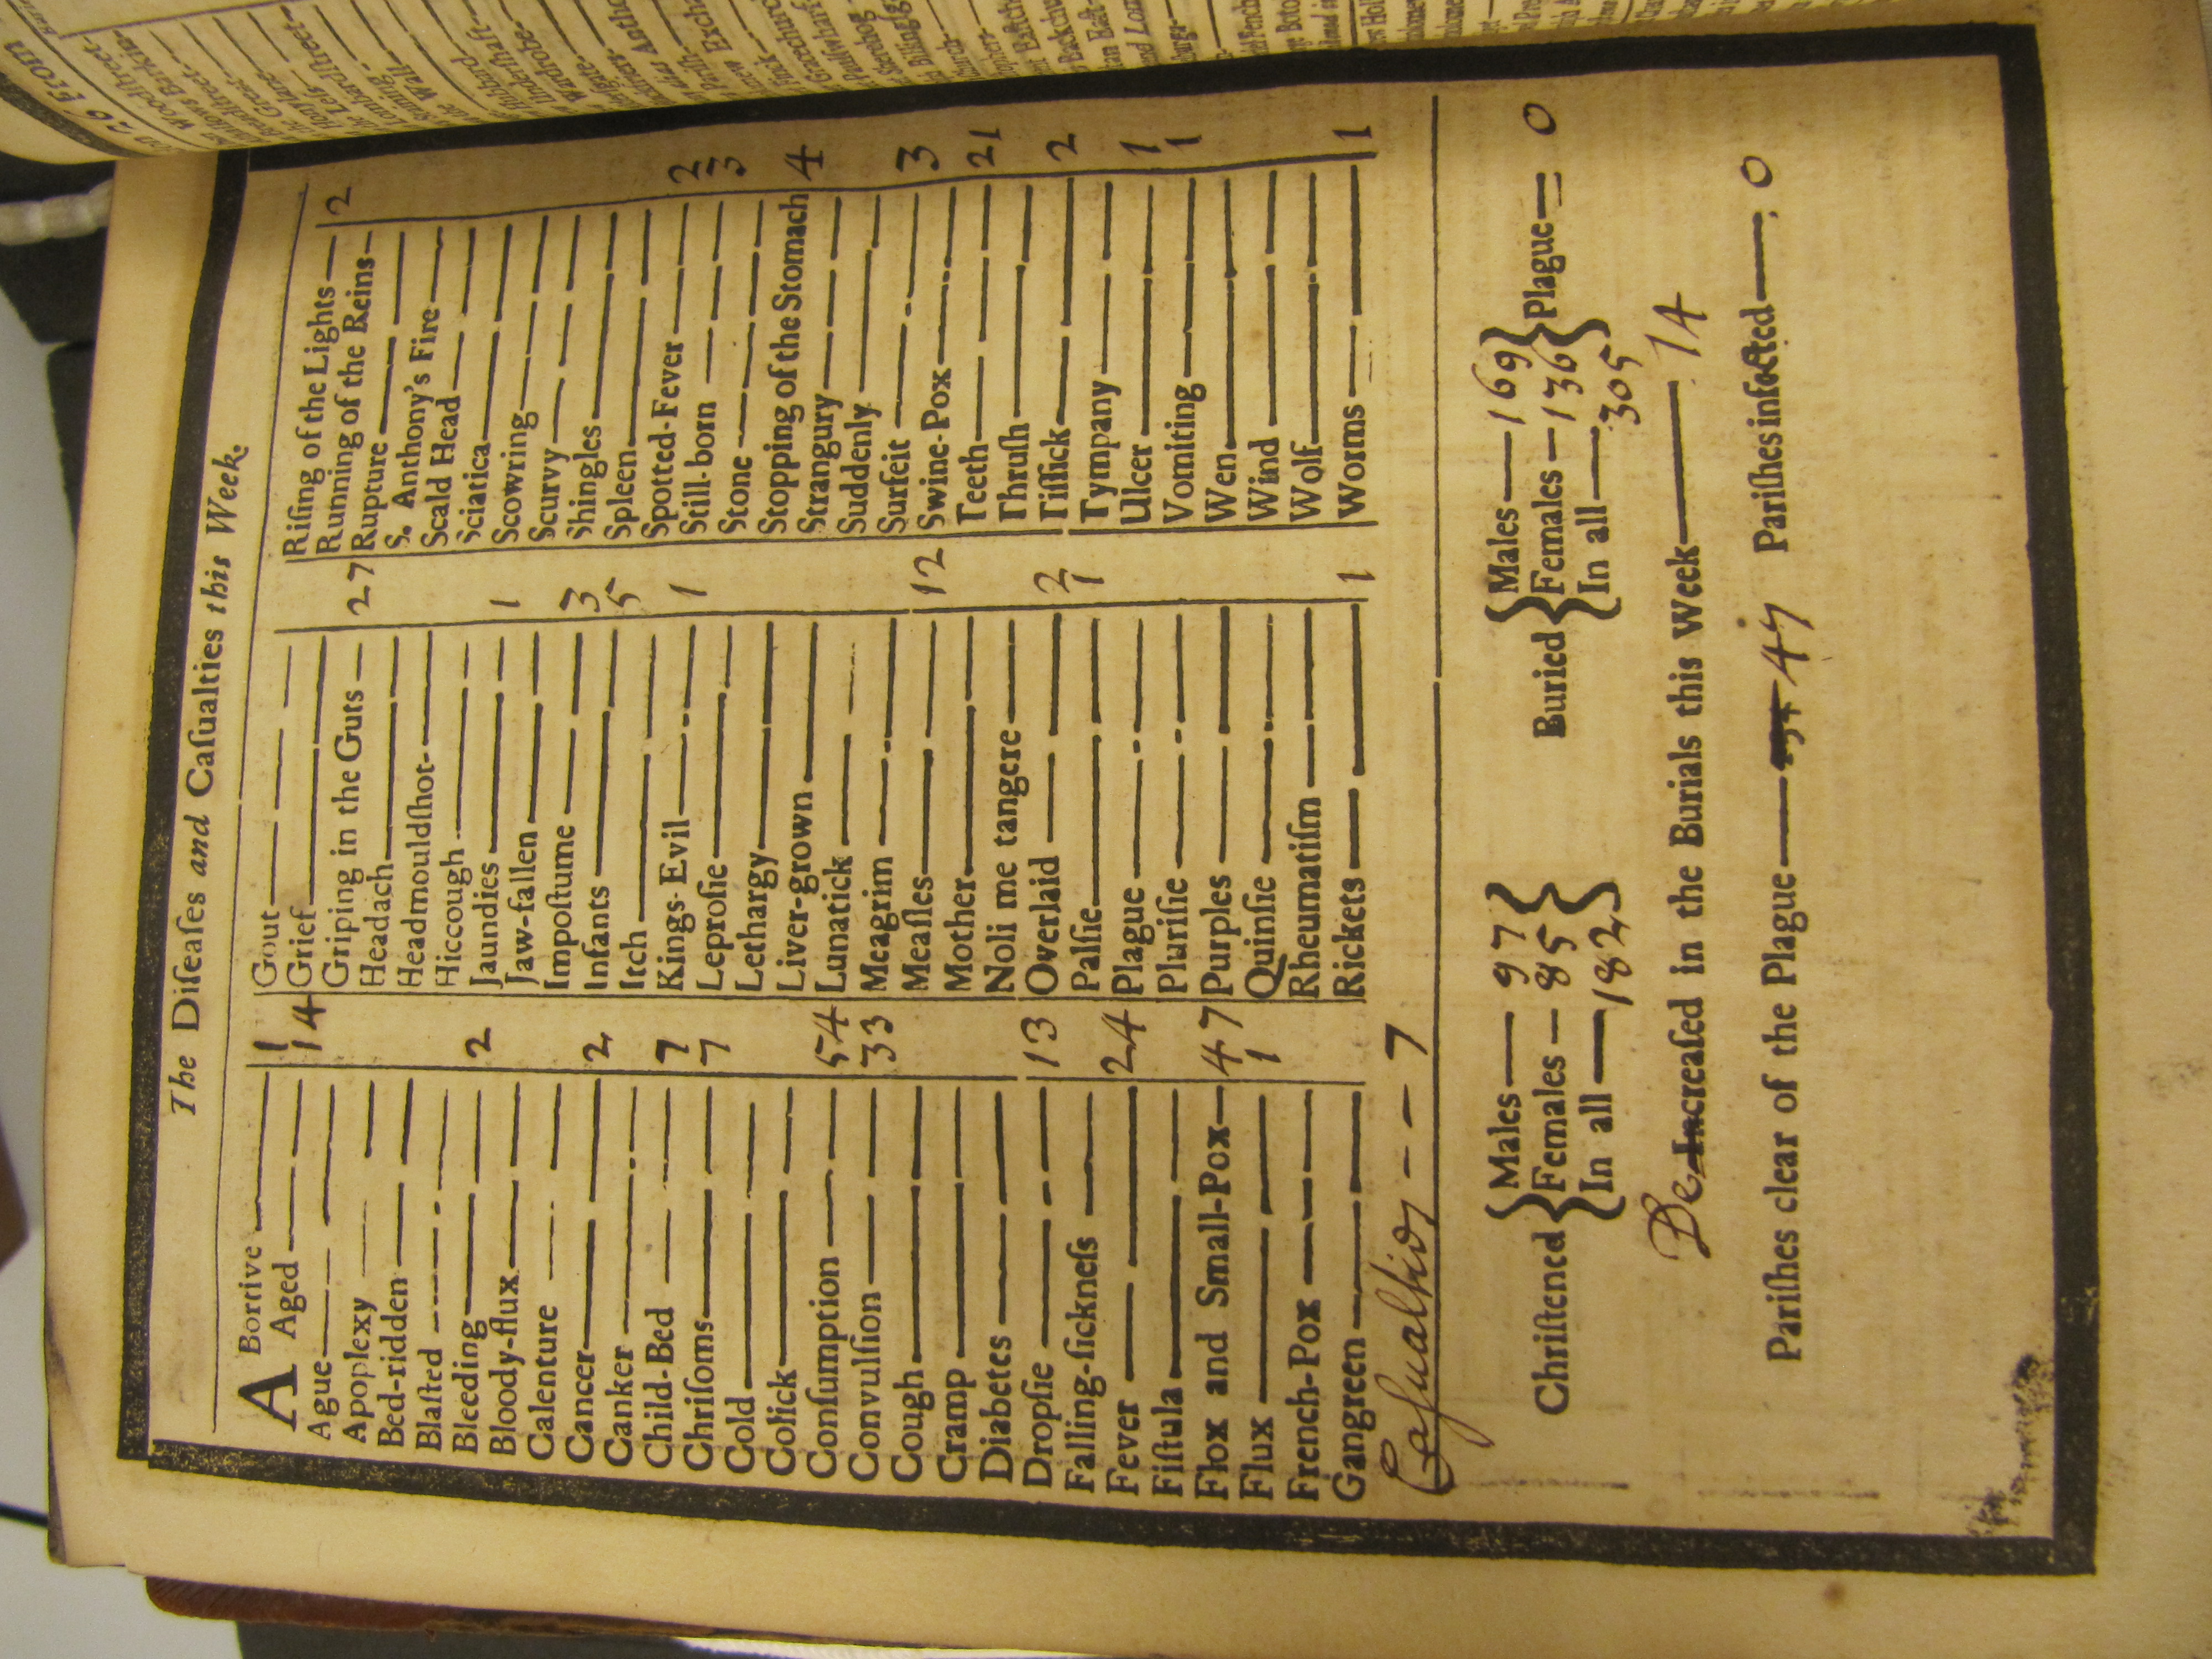 The Diſeaſes and Caſualties this Week.
ABortive 1
Aged 14
Ague
Apoplexy
Bed-ridden
Blaſted
Bleeding 2
Bloody-flux
Calenture
Cancer 2
Canker
Child-Bed 7
Chriſoms 7
Cold
Colick
Conſumption 54
Convulſion 33
Cough
Cramp
Diabetes
Dropſie 13
Falling-ſickneſs
Fever 24
Fiſtula
Flox and Small-Pox 47
Flux 1
French-Pox
Gangreen
Caſualties 7
Gout
Grief
Griping in the Guts 27
Headach
Headmouldſhot
Hiccough
Jaundies 1
Jaw-fallen
Impoſtume 3
Infants 5
Itch
Kings-Evil 1
Leproſie
Lethargy
Liver-grown
Lunatick
Meagrim
Meaſles 12
Mother
Noli me tangere
Overlaid 2
Palſie 1
Plague
Pluriſie
Purples
Quinſie
Rheumatiſm
Rickets 1
Riſing of the Lights 2
Running of the Reins
Rupture
S. Anthony's Fire
Scald Head
Sciatica
Scowring
Scurvy
Shingles
Spleen
Spotted-Fever 2
Still-born 3
Stone
Stopping of the Stomach 4
Strangury
Suddenly
Surfeit 3
Swine-Pox
Teeth 21
Thruſh
Tiſſick 2
Tympany
Ulcer 1
Vomiting 1
Wen
Wind
Wolf
Worms 1
Chriſtened { Males 97 Females 85 In all 182 }
Buried { Males 169 Females 136 In all 305 } Plague 0
De Increaſed in the Burials this Week 14
Pariſhes clear of the Plague 47 Pariſhes infected 0